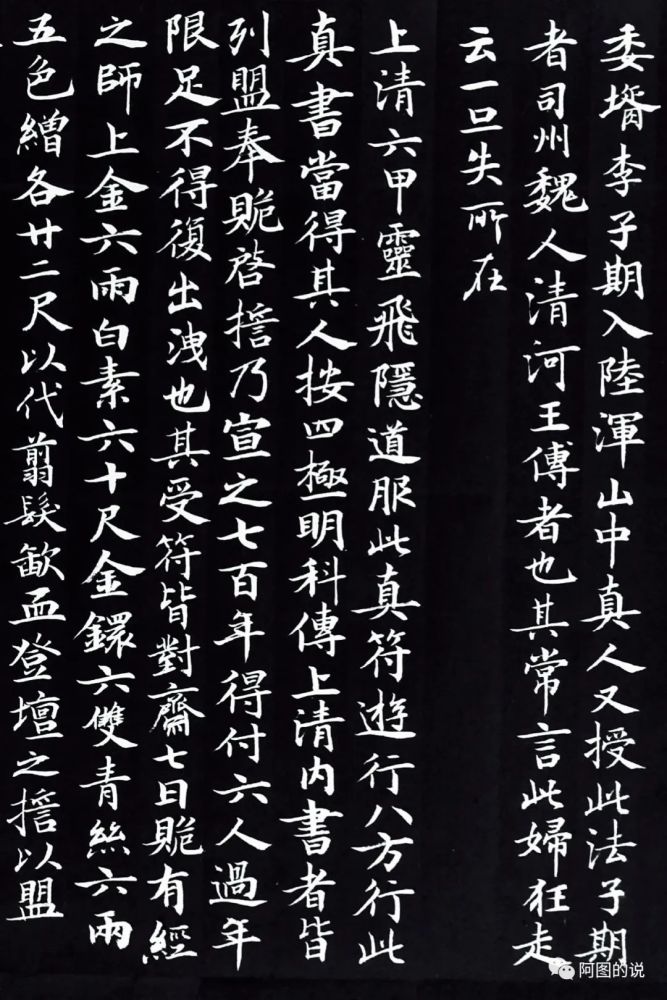 委壻李子期入陸渾山中真人又授此法子期
者司州魏人清河王傅者也其常言此婦狂走
云一旦失所在
上清六甲靈飛隱道服此真符遊行八方行此
真書當得其人按四極明科傳上清内書者皆
列盟奉贶啓擔乃宣之七百年得付六人過年
限足不得復出洩也其受符皆對齋七日贶有經
之師上金六兩白素六十尺金鐶六雙青絲六兩
五色繒各廿二尺以代翦髮歃血登壇之擔以盟
阿图的说